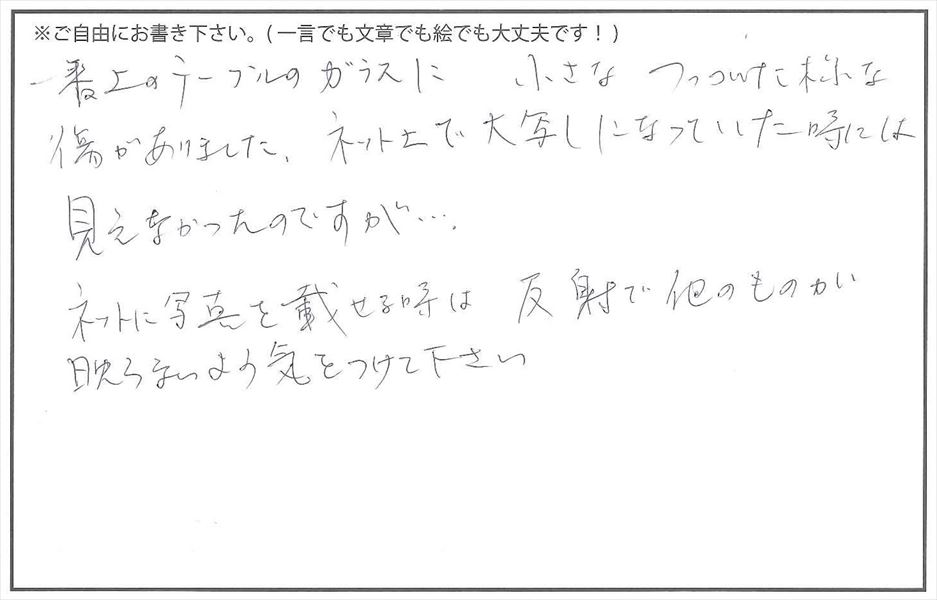 ※ご自由にお書き下さい。(一言でも文章でも絵でも大丈夫です!)
一番上のテーブルのガラスに 小さな つっついた様な
傷がありました。ネット上で大写しになっていた時には
見えなかったのですが….
ネットに写真を載せる時は 反射で他のものが
映らないよう気をつけて下さい